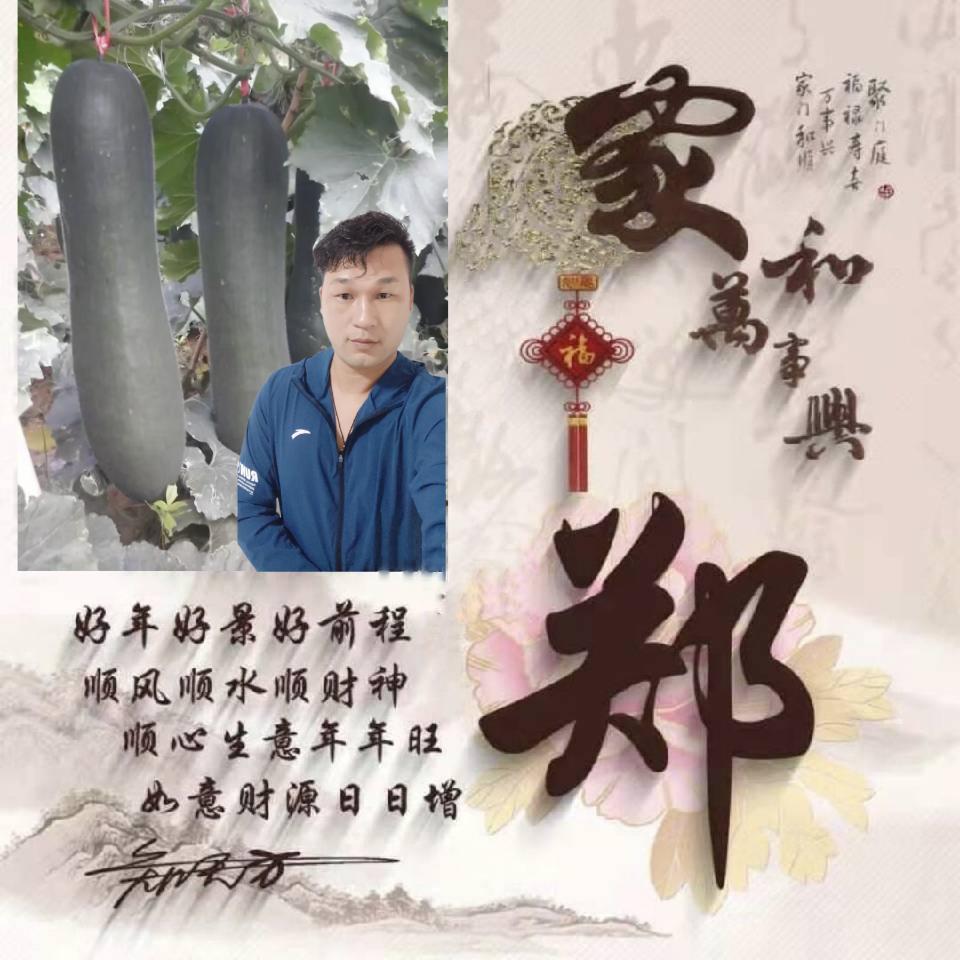 聚门庭
福禄寿喜
万事兴
家门和顺
家和
萬事興
福
郑
RUN
好年好景好前程
顺风顺水顺财神
顺心生意年年旺
如意财源日日增